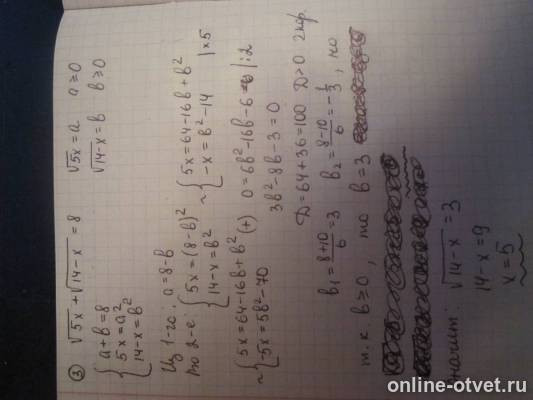 ③ √5x + √14-x = 8    √5x = a    a ≥ 0
{ a+b=8    √14-x = b    b ≥ 0
5x=a²
14-x=b²
Из 1-го: a=8-b
то 2-е: { 5x=(8-b)²    ~ { 5x=64-16b+b²
14-x=b²    -x=b²-14 | ×5
~ { 5x=64-16b+b² (+)    0=6b²-16b-6 |:2
-5x=5b²-70    3b²-8b-3=0
D=64+36=100    D>0    2 кор.
b₁ = 8+10/6 = 3    b₂ = 8-10/6 = -1/3, но
т.к. b≥0, то b=3
значит: √14-x = 3
14-x=9
x=5
online-otvet.ru